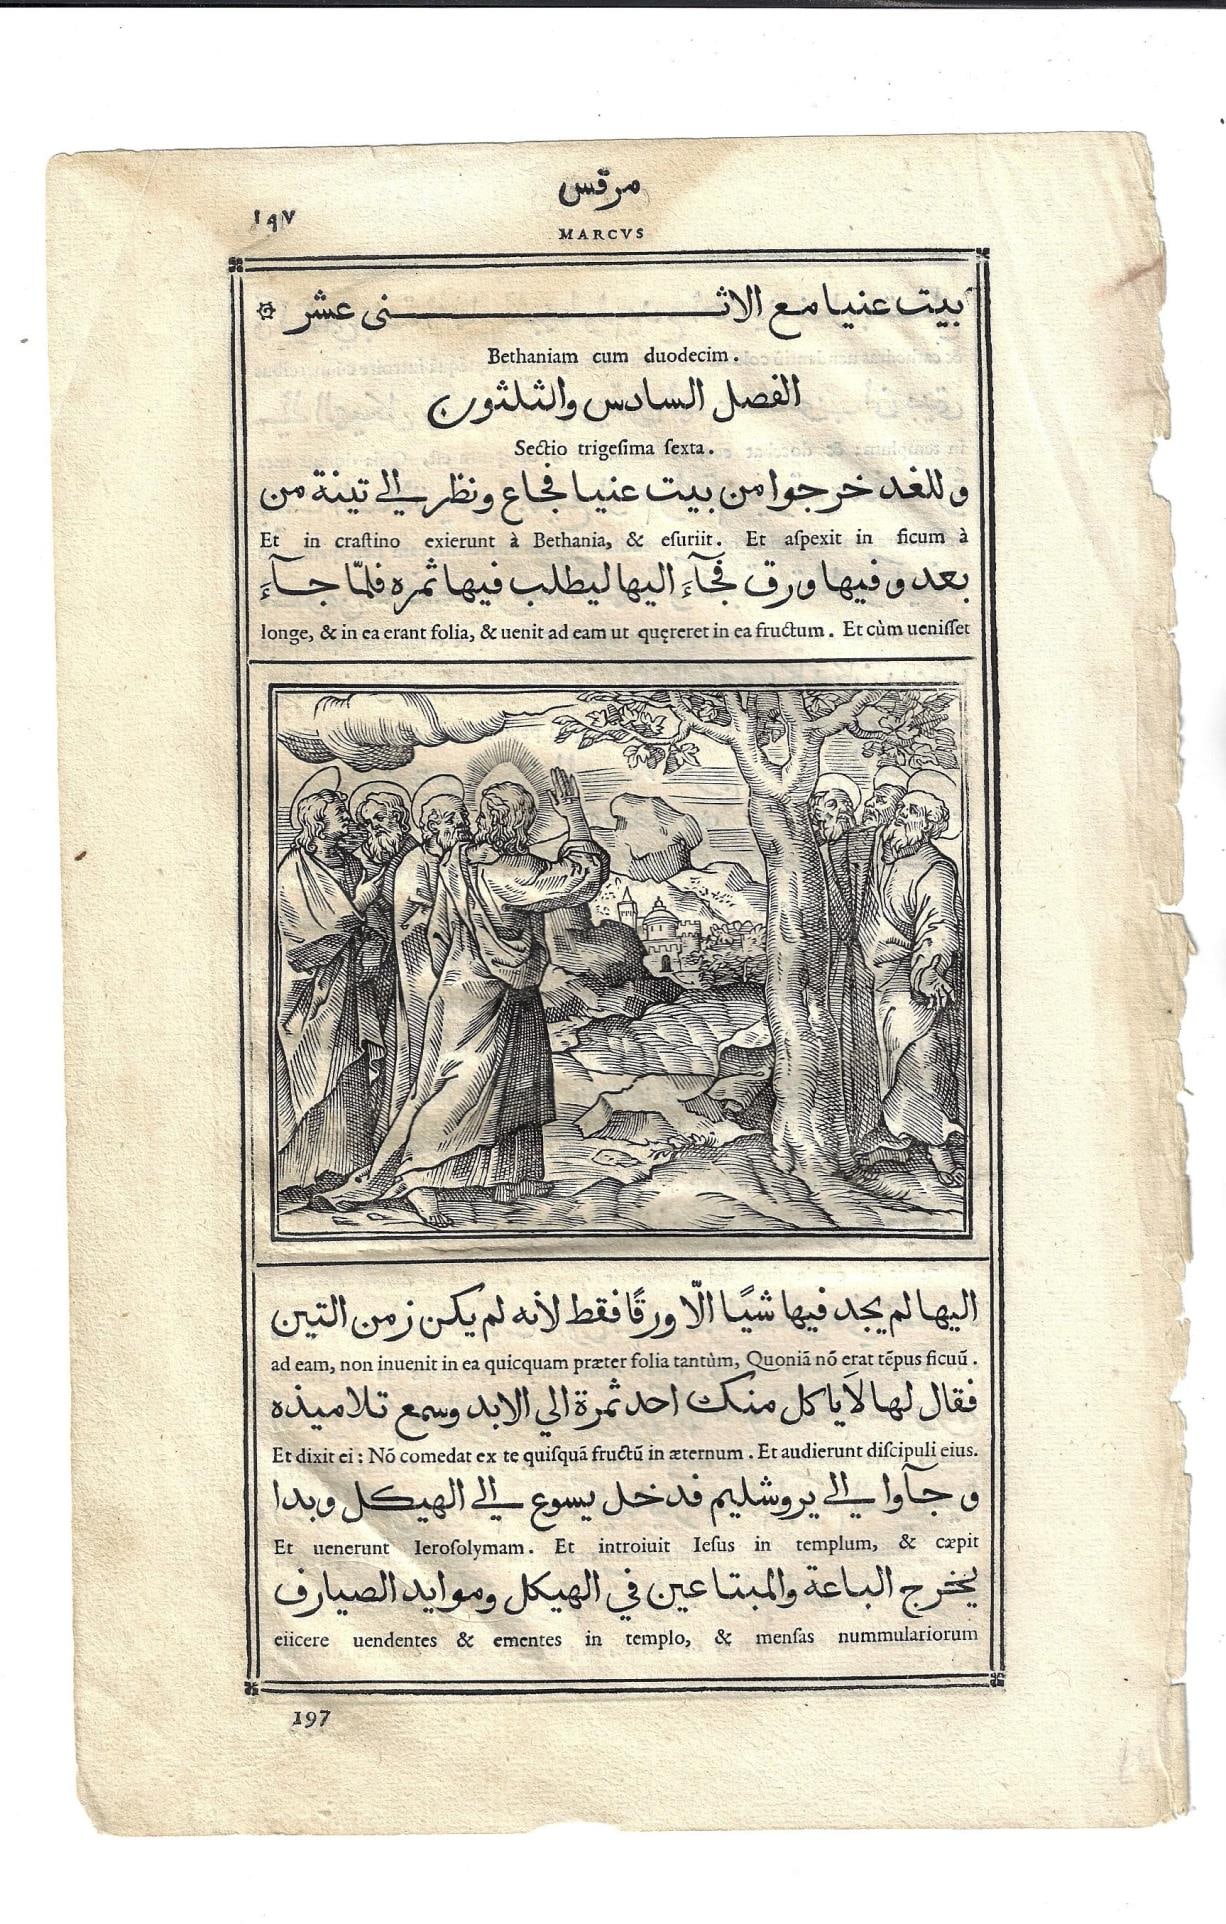 مرقس
١٩٧
MARCVS
بيت عنيا مع الاثنى عشر
Bethaniam cum duodecim.
الفصل السادس والثلثون
Sectio trigeſima ſexta.
وللغد خرجوا من بيت عنيا فجاع ونظر الي تينة من
Et in craſtino exierunt à Bethania, & eſuriit. Et aſpexit in ficum à
بعد وفيها ورق فجآءَ اليها ليطلب فيها ثمره فلمّا جآءَ
longe, & in ea erant folia, & uenit ad eam ut quęreret in ea fructum. Et cùm ueniſſet
اليها لم يجد فيها شيًا الّا ورقًا فقط لأنه لم يكن زمن التين
ad eam, non inuenit in ea quicquam præter folia tantùm, Quoniã nõ erat tẽpus ficuũ.
فقال لها لَا ياكل منك احد ثمرة الي الابد وسمع تلاميذه
Et dixit ei: Nõ comedat ex te quiſquã fructũ in æternum. Et audierunt diſcipuli eius.
وجآوا الي يروشليم فدخل يسوع الي الهيكل وبدا
Et uenerunt Ieroſolymam. Et introiuit Ieſus in templum, & cæpit
يخرج الباعة والمبتاعين في الهيكل وموايد الصيارف
eiicere uendentes & ementes in templo, & menſas nummulariorum
197